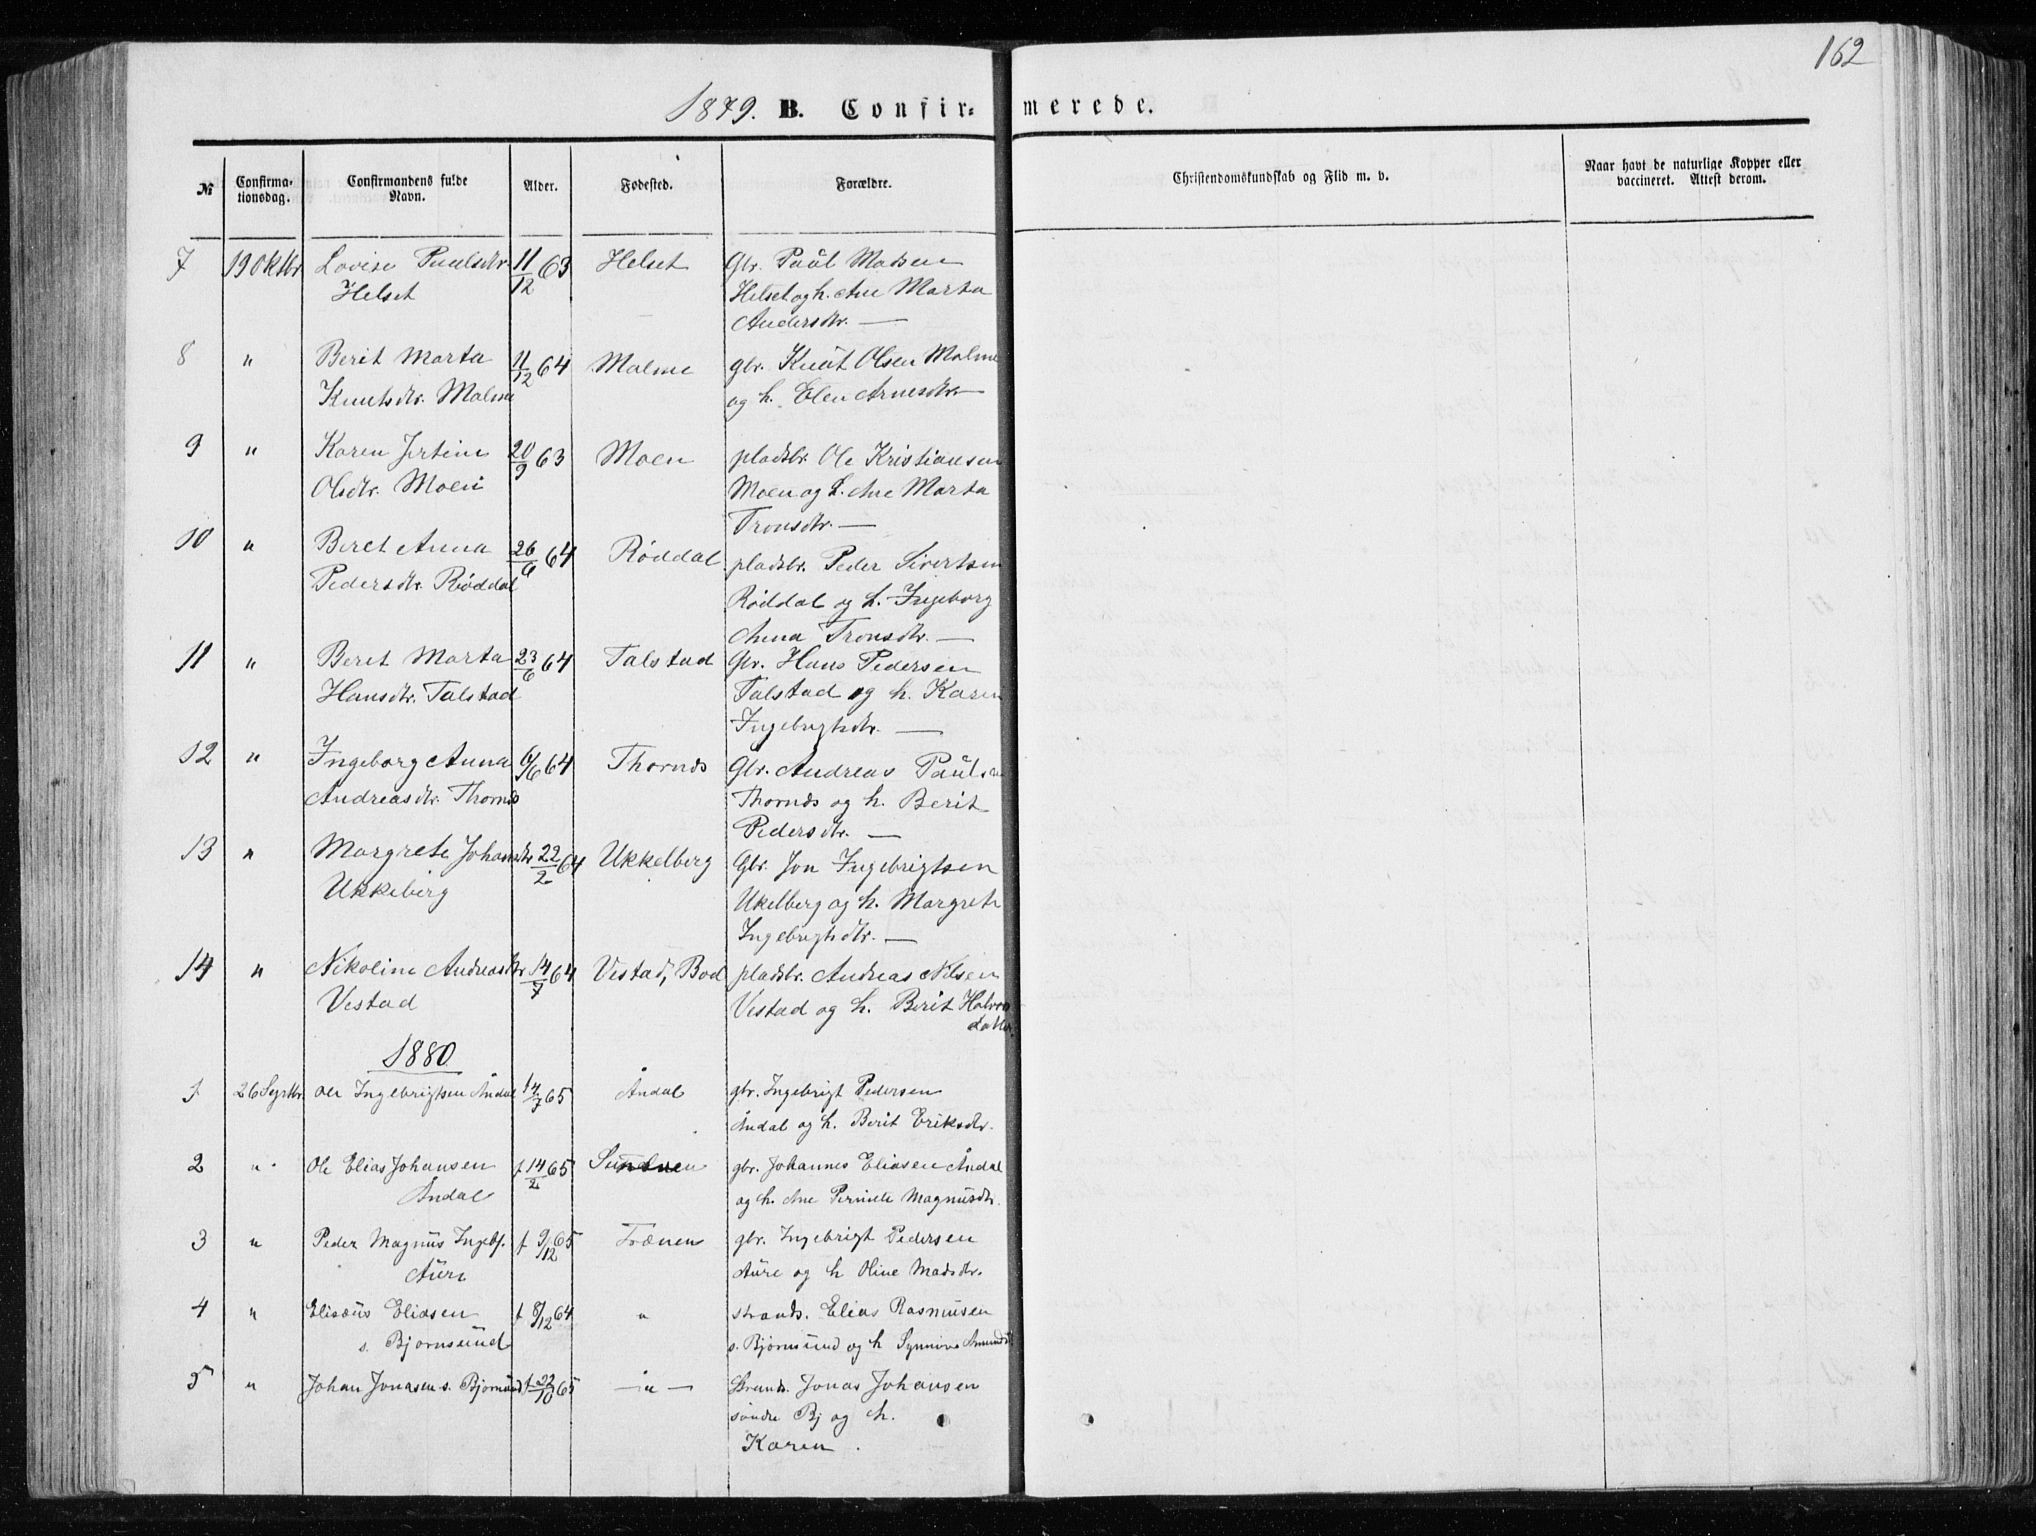 162
1879. B. Confir-merede.
№ Confirmationsdag. Confirmandens fulde Navn. Alder. Fødested. Forældre. Christendomskundskab og Flid m. v. Naar havt de naturlige Kopper eller vaccineret. Attest derom.
7 19 Oktbr. Lovise Paulsdtr. 11/12 63 Helset Gbr. Paul Madsen
Helset Helset og h. Ane Marta
Andersdtr. —
8 " Berit Marta 11/12 64 Malme gbr. Knut Olsen Malme
Knutsdtr. Malme og h. Elen Arnesdtr.
9 " Karen 20/9 63 Moen pladsbr. Ole Kristiansen
Olsdtr. Moen Moen og h. Ane Marta
Tronsdtr. —
10 " Beret Anna 26/6 64 Røddal pladsbr. Peder Sivertsen
Pedersdtr. Røddal Røddal og h. Ingeborg
Anna Tronsdtr. —
11 " Beret Marta 23/6 64 Talstad Gbr. Hans Pedersen
Hansdtr. Talstad Talstad og h. Karen
Ingebrigtsdtr. —
12 " Ingeborg Anna 6/6 64 Thornæs Gbr. Andreas Paulsen
Andreasdtr. Thornæs Thornæs og h. Berit
Pedersdtr. —
13 " Margrete Johansdtr 22/2 64 Ukkelberg Gbr. Jon Ingebrigtsen
Ukkelberg Ukelberg og h. Margrete
Ingebrigtsdtr. —
14 " Nikoline Andreasdtr 14/7 64 Vestad, Bod pladsbr. Andreas Nilsen
Vestad Vestad og h. Berit
1880
1 26 Septbr. Ole Ingebrigtsen Åndal 14/7 65 Åndal gbr. Ingebrigt Pedersen
Åndal og h. Berit Eriksdtr.
2 " Ole Elias Johansen f 14/2 65 gbr. Johannes Eliasen Åndal
Åndal og h. Ane Pernele Magnusdtr.
3 " Peder Magnus Ingebr. f 9/12 65 Frænen gbr. Ingebrigt Pedersen
Aure Aure og h Oline Madsdtr.
4 " Elisæus Eliasen f 8/12 64 " strands. Elias Rasmusen
s. Bjørnsund s. Bjørnsund og h Synnive Amundsd
5 " Johan Jonasen s. Bjørnsund f 22/10 65 — " — Strands. Jonas Johansen
søndre Bj og h.
Karen .